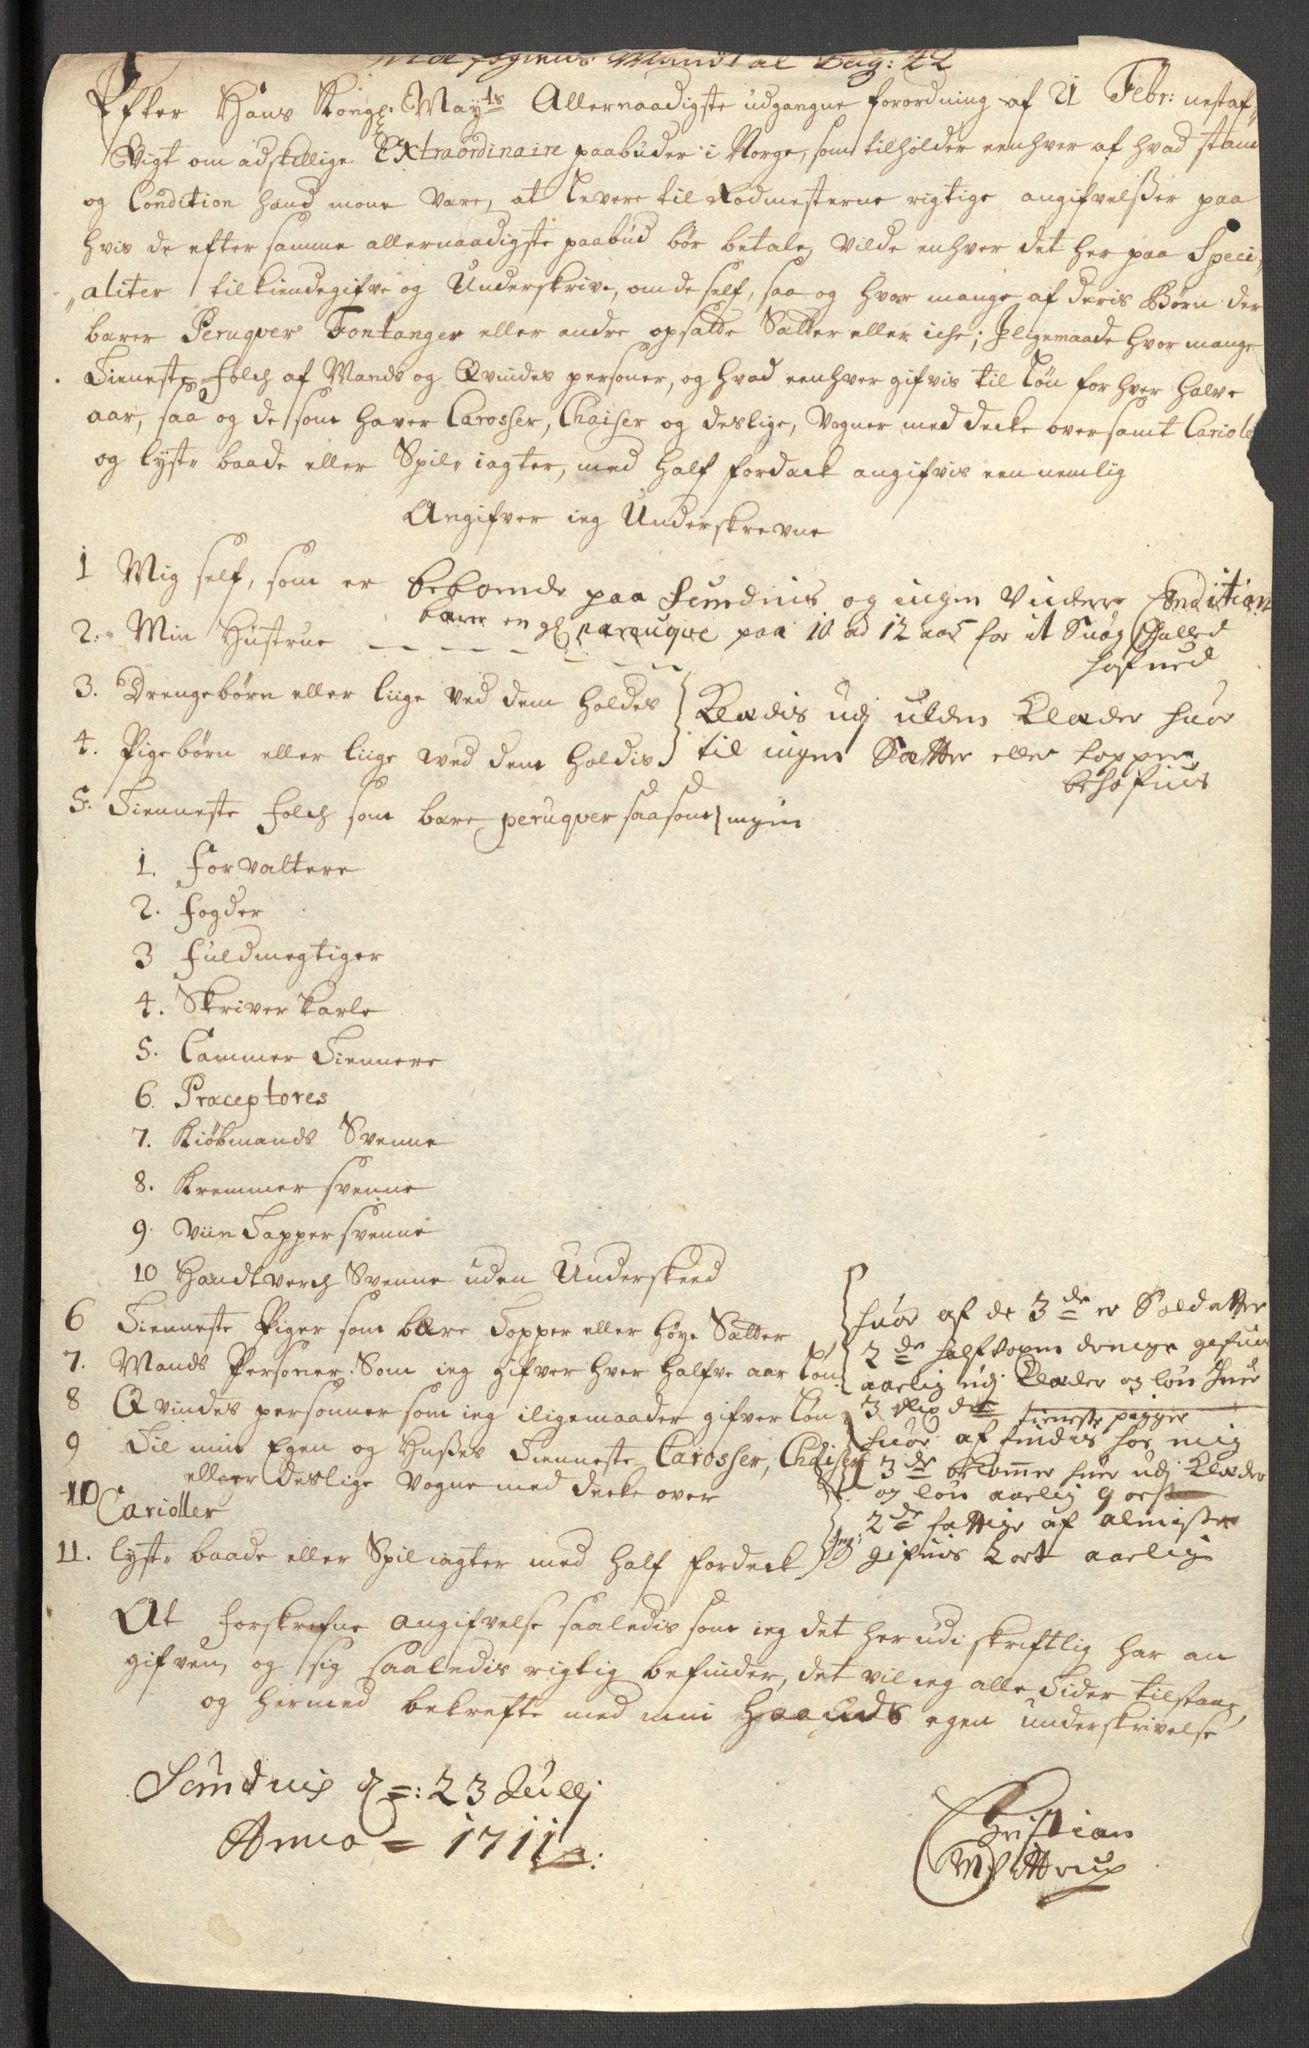 Sognens Mandtal Pag: 22
Efter Hans Kongl: Mayts Allernaadigste udgangne forordning af 21 Febr: nestaf
Vigt om adskellige Extraordinaire paabuder i Norge, som tilholder eenhver af hvad stand
og Condition hand mone være, at levere til Rodmesterne rigtige angifvelßer paa
hvis de efter samme allernaadigste paabud bør betale, Vilde enhver det her paa Speci,,
,,aliter tilkiendegifve og Underskrive, om de self, saa og hvor mange af deris Børn der
bærer Peruqver Fontanger eller andre opsatte Sætter eller iche; Jligemaade hvor mange
Tieneste Folch af Mands og Qvindes personer, og hvad eenhver gifvis til Løn for hver halve
aar, saa og de som haver Carosser, Chaiser og deslige, Vogner med decke over samt Carioler
og lyst baade eller Spil iagter, med half fordæck angifvis een nemlig
Angifver ieg Underskrevne
1 Mig self, som er beboende paa Semdnis og ingen Videre Condition
bærer en gl parruque paa 10 ad 12 aar for it Suag Hoffued
2. Min Hustrue
3. 6 Drengebørn eller liige ved dem holdes } Klædis udj ulden Klæder huor
4. Pigebørn eller liige ved dem holdis } til ingen Sætter eller topper behøfuis
5. Tienneste Folch som bære peruqver saasom } ingen
1. Forvaltere
2. Fogder
3 Fuldmegtiger
4. Skriver Karle
5. Cammer Tiennere
6. Præceptores
7. Kiøbmands Svenne
8. Kremmer svenne
9. Viin Tapper svenne
10 Handtverch Svenne uden Underskeed
6 Tienneste Piger som bære Topper eller høye Sætter
7. Mands Personer Som ieg gifver hver halfve aar løn
8 Qvindes personner som ieg iligemaader gifver løn
9 Til min Egen og Hußes Tienneste Carosser, Chaiser
eller deslige Vogne med decke over
10 Carioller
11. lyst baade eller Spil iagter med half fordeck
huor af de 3de er Soldatter
2de halfvoxne drenge gifuis
aarlig udj Klæder og løn huer
3 tieneste pigger
huor af findis hos mig
3de bekommer huer udj Klæder
og løn aarlig 9 ort
2de fattige af almisse
gifuis 2 ort aarlig
At forskrefne angifvelse saaledis som ieg det her udi skriftlig har an
gifven, og sig saaledis rigtig befinder, det vil ieg alle Tider tilstaae,
og hermed bekrefte med min Haands egen underskrivelse
Semdnis d: 23 Julij
Anno 1711
Christian
Wittrup